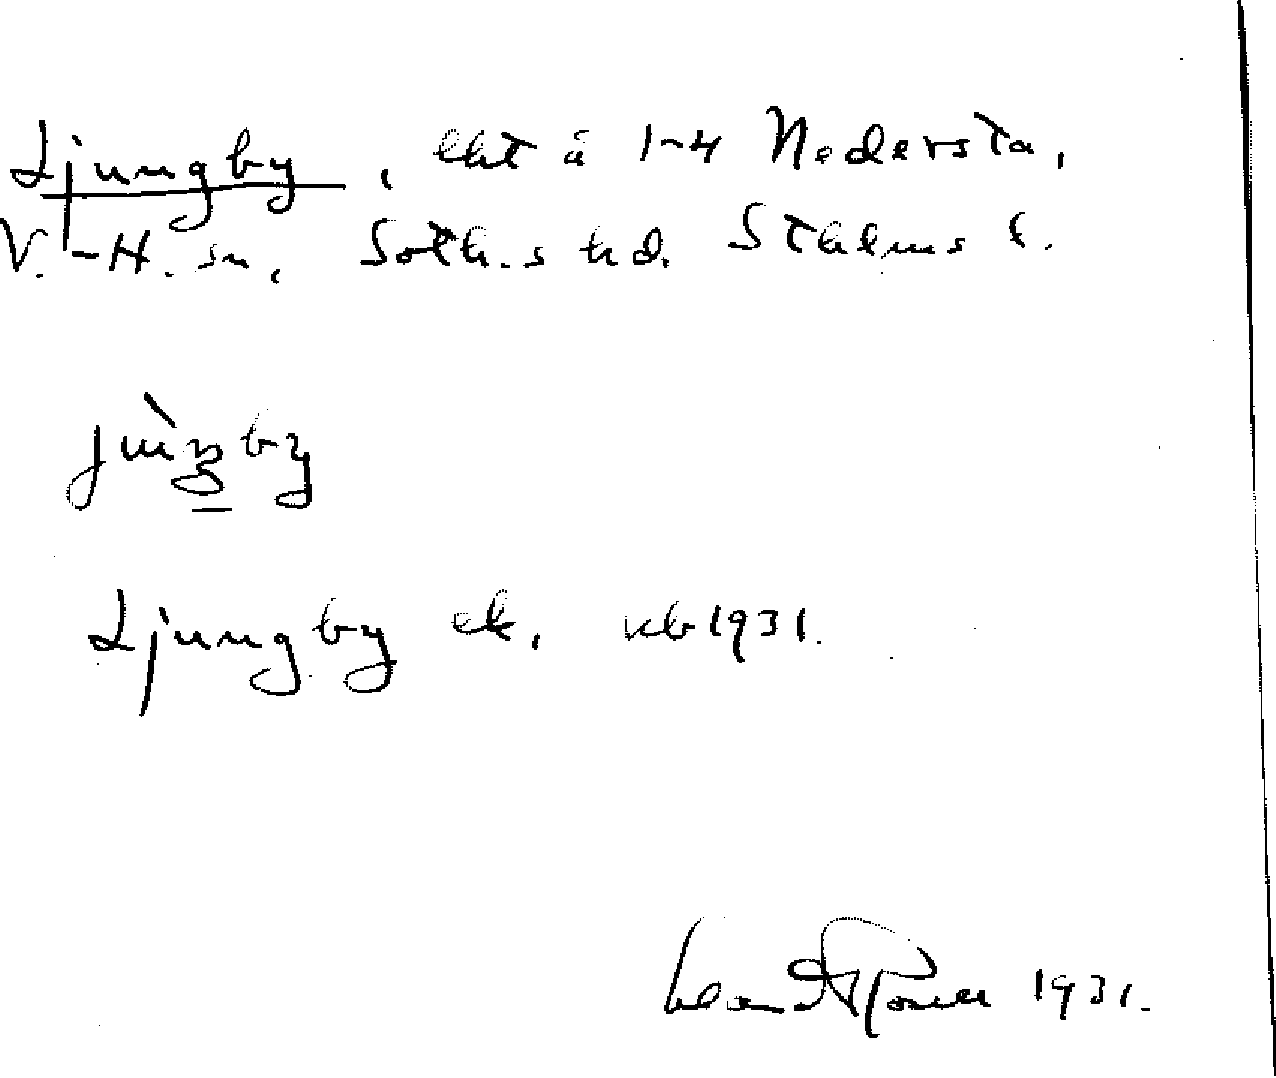 Ljungby, lht å 1-4 Nedersta,
V.-H. sn, Soth.s hd. Sthlms l.
jùŋby
Ljungby ek. kb 1931.
1931.